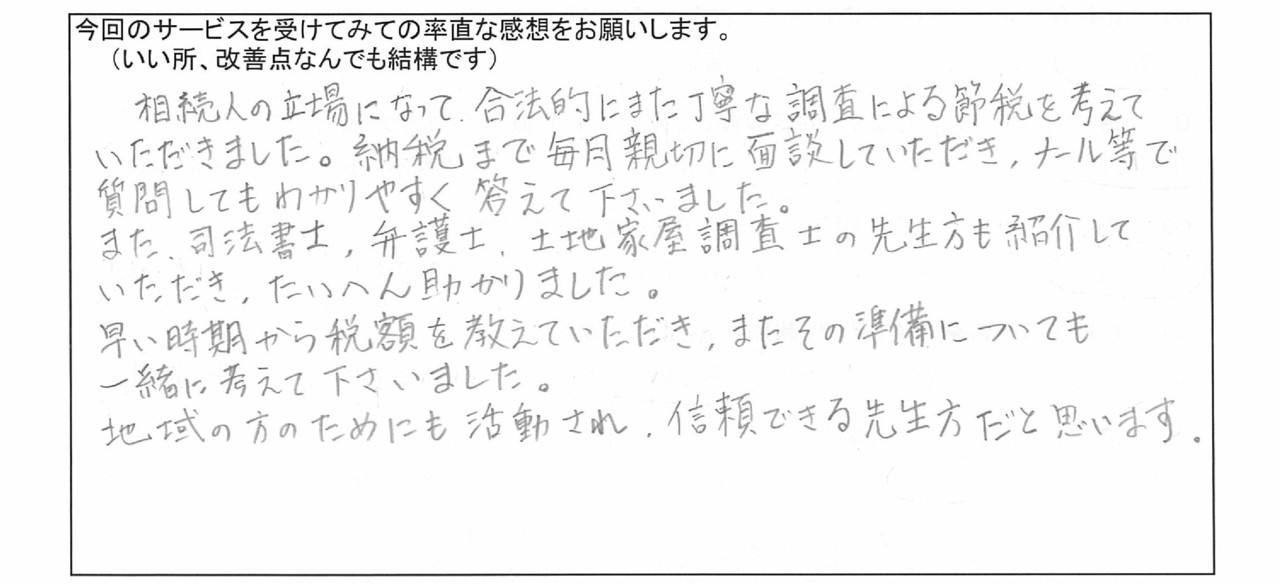 今回のサービスを受けてみての率直な感想をお願いします。
（いい所、改善点なんでも結構です）
相続人の立場になって、合法的にまた丁寧な調査による節税を考えて
いただきました。納税まで毎月親切に面談していただき、メール等で
質問してもわかりやすく答えて下さいました。
また、司法書士、弁護士、土地家屋調査士の先生方も紹介して
いただき、たいへん助かりました。
早い時期から税額を教えていただき、またその準備についても
一緒に考えて下さいました。
地域の方のためにも活動され、信頼できる先生方だと思います。